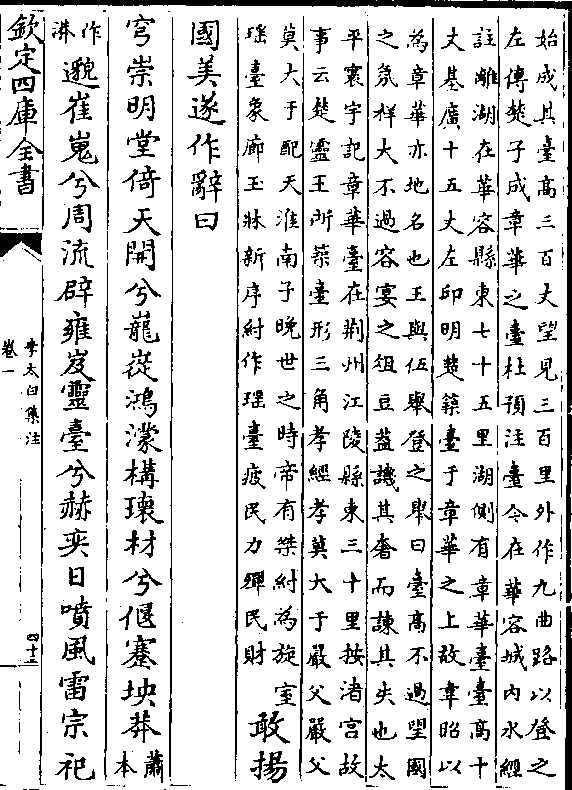 始成其臺高三百丈望見三百里外作九曲路以登之
左傳楚子成章華之臺杜預注臺今在華容城内水經
註離湖在華容縣東七十五里湖側有章華臺臺高十
丈基廣十五丈左印明楚築臺于章華之上故韋昭以
為章華亦地名也王與伍舉登之舉曰臺髙不過望國
之氛祥大不過容宴之俎豆葢譏其奢而諫其失也太
平寰宇記章華臺在荆州江陵縣東三十里按渚宫故
事云楚靈王所築臺形三角孝經孝莫大于嚴父嚴父
莫大于配天淮南子晚世之時帝有桀紂為旋室
瑶臺象廊玉牀新序紂作瑶臺疲民力殫民財
敢揚
國美遂作辭曰
穹崇明堂倚天開兮巃嵸鴻濛構瓌材兮偃蹇坱莽
蕭本
作漭
邈崔嵬兮周流辟雍岌靈臺兮赫奕日噴風雷宗祀
欽定四庫全書
李太白集注
卷一
四十二